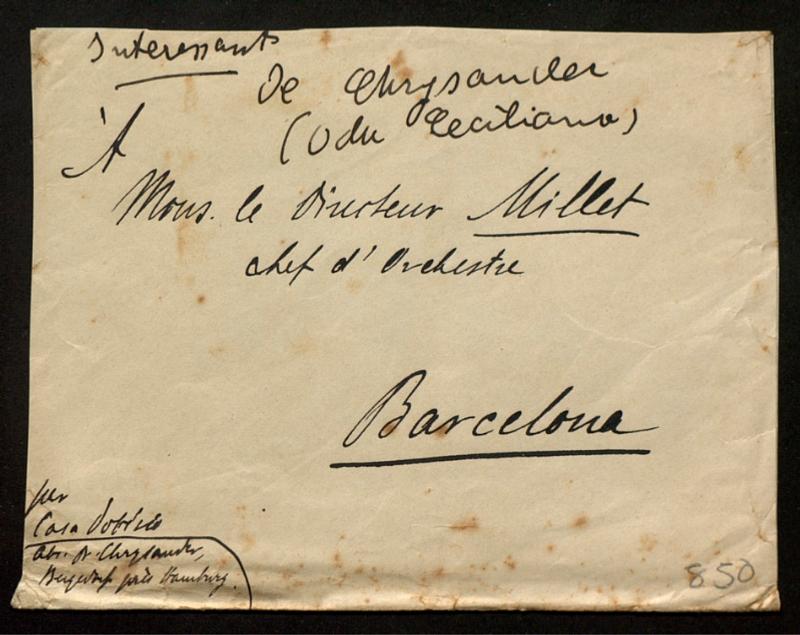 Interessant
De Chrysander
(Oda Ceciliana)
À
Mons. le Directeur Millet
chef d'Orchestre
Barcelona
per
Casa Dotésio
Abs. Dr Chrysander,
Bergedorf près Hamburg.
850